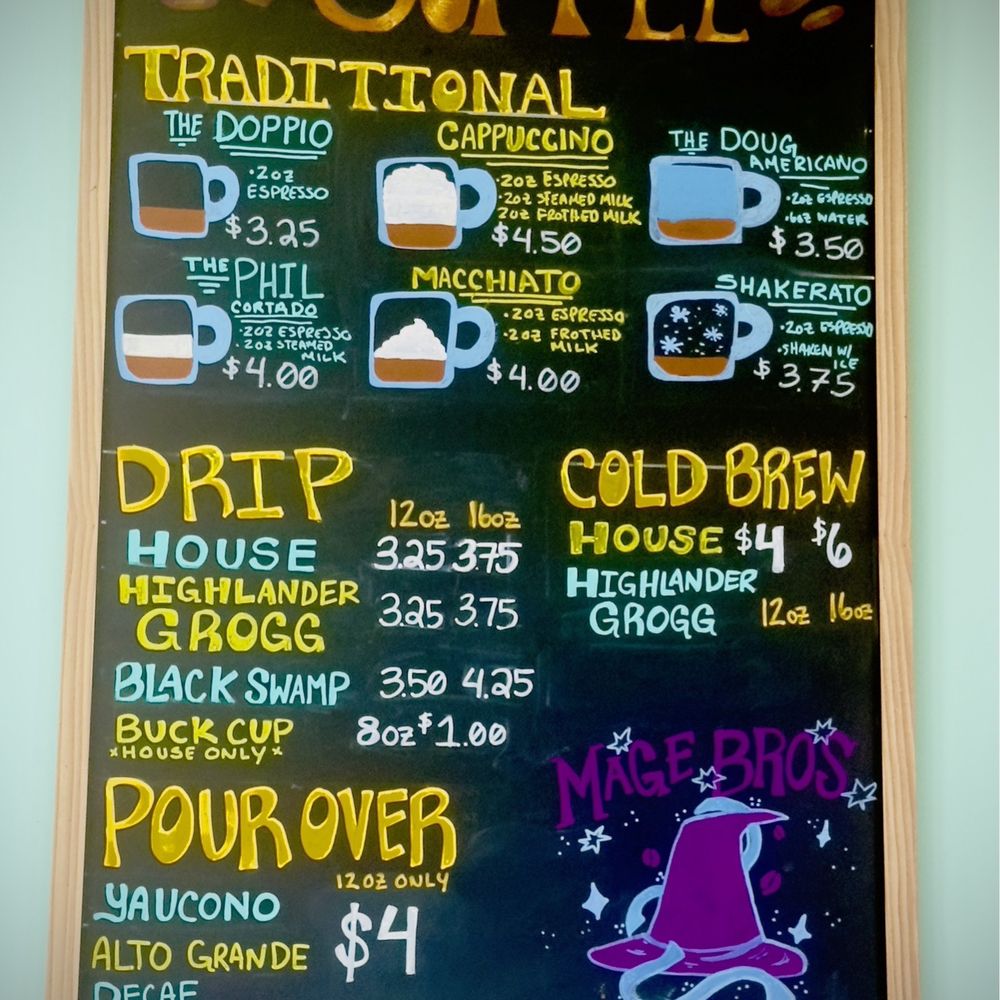 COFFEE
TRADITIONAL
THE DOPPIO
•2OZ
ESPRESSO
$3.25
CAPPUCCINO
•2OZ ESPRESSO
•2OZ STEAMED MILK
2OZ FROTHED MILK
$4.50
THE DOUG
AMERICANO
•2OZ ESPRESSO
•6OZ WATER
$3.50
THE PHIL
CORTADO
•2OZ ESPRESSO
•2OZ STEAMED
MILK
$4.00
MACCHIATO
•2OZ ESPRESSO
•2OZ FROTHED
MILK
$4.00
SHAKERATO
•2OZ ESPRESSO
•SHAKEN W/
ICE
$3.75
DRIP
12OZ 16OZ
HOUSE 3.25 3.75
HIGHLANDER
GROGG 3.25 3.75
BLACK SWAMP 3.50 4.25
BUCK CUP 8OZ $1.00
*HOUSE ONLY*
COLD BREW
HOUSE $4 $6
HIGHLANDER
GROGG 12OZ 16OZ
POUR OVER
12OZ ONLY
YAUCONO
ALTO GRANDE $4
DECAF
MAGE BROS